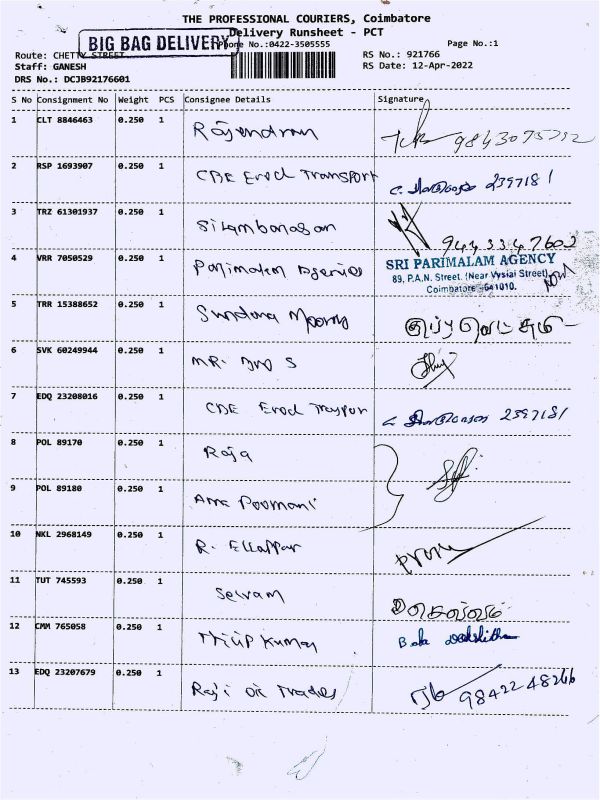 THE PROFESSIONAL COURIERS, Coimbatore
Delivery Runsheet - PCT
BIG BAG DELIVERY
Phone No.:0422-3505555
Page No.:1
Route: CHETTY STREET
RS No.: 921766
Staff: GANESH
RS Date: 12-Apr-2022
DRS No.: DCJB92176601
S No Consignment No Weight PCS Consignee Details Signature
1 CLT 8846463 0.250 1 Rajendran 9843075752
2 RSP 1693907 0.250 1 CBE Erod Transport 2397181
3 TRZ 61301937 0.250 1 Silambarasan 9443347602
4 VRR 7050529 0.250 1 Parimalam Agencies
SRI PARIMALAM AGENCY
89, P.A.N. Street, (Near Vysial Street),
Coimbatore - 641010.
5 TRR 15388652 0.250 1 Sundara Moorthy
6 SVK 60249944 0.250 1 MR.
7 EDQ 23208016 0.250 1 CBE Erod 2397181
8 POL 89170 0.250 1 Raja
9 POL 89180 0.250 1 Poomani
10 NKL 2968149 0.250 1 R.
11 TUT 745593 0.250 1 Selvam
12 CMM 765058 0.250 1 Thilip Kumar Bala
13 EDQ 23207679 0.250 1 Raji Oil Trades 9842248266